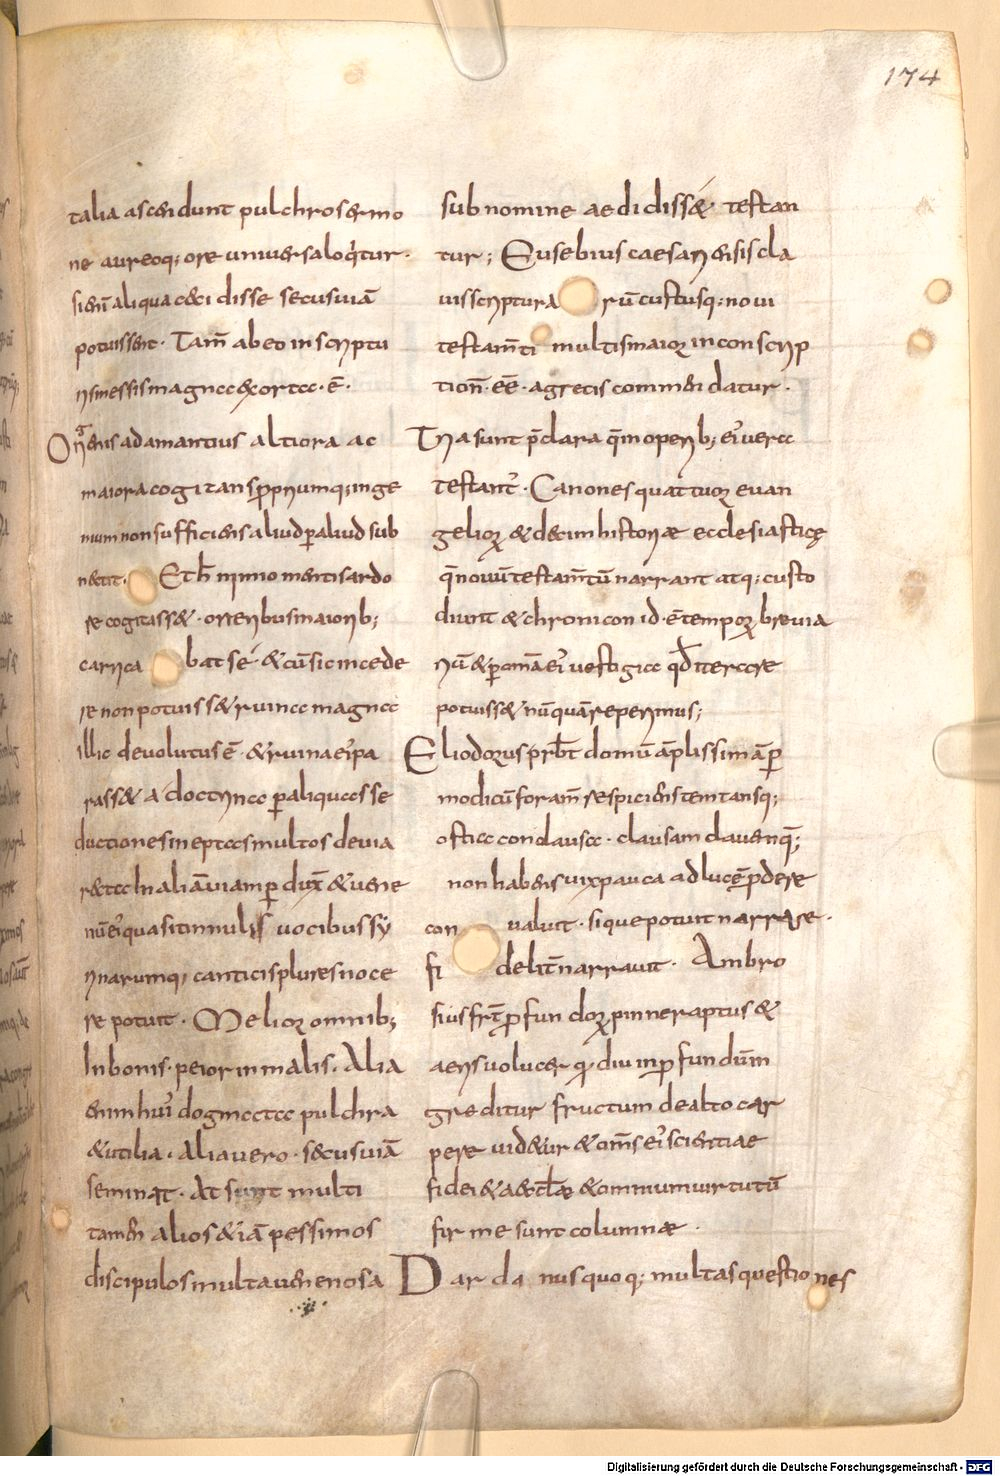 174
talia ascendunt pulchro sermo
ne aureoq; ore universa loqitur.
sien̄ aliqua ceci disse secus uiā
potuissent. Tam̄ ab eo in scriptu
ris messis magna exorta. ē.
Origenis adamantius altiora ac
maiora cogitans ppriumq; inge
nium non sufficiens aliud p aliud sub
netit. Et h̄ nimio mentis ardo
re cogitass&. oneribus maiorib;
carrica bat sé & cū sic incede
re non potuiss& ruina magna
illic devolutus ē & ruina ei' pa
rass& a' doctrina p aliquas se
ductiones ineptas multos devia
r& ta In aliā uiam p dux̄ & uene
nū ei' quasi in mulis uocibus sy
rinarumq; canticis plures noce
re potuit. Melior omnib;
In bonis. peior in malis. Alia
enim hui' dogmata pulchra
& utilia. Alia uero. secus uiā
seminat. At sunt multi
tamen alios & iā pessimos
discipulos multa uenenosa
sub nomine ae didiss& testan
tur; Eusebius caesariensis cla
uis scriptura rū custusq; noui
testam̄ti multis maior in conscrip
tion̄. eē. a grecis commendatur.
Tria sunt p̄clara q̄ in operib; ei' uera
testant'. Canones quattuor euan
gelior & decim historiæ ecclesiasticę
q̄ nouū testam̄tū narrant atq; custo
diunt & chronicon id. ē tempor brevia
riū & p omā ei' uestigia qđ iterare
potuiss& nūquā reperimus;
Eliodorus prb̄t domū āplissimā p
modicū foram̄ respiciens temtansq;
ostia conclausa. clausam clauenq̄;
non habens uix pauca ad lucē p̄dere
con ualuit. sique potuit narrare.
fi delit̄ narrauit. Ambro
sius frt̄ p fundor pinne raptus &
aeris uolucer q diu in pfundūm
greditur fructum de alto car
pere uidetur & om̄s ei' scientiae
fidei & aeccl̄æ & omnium uirtutū
firme sunt columnæ.
Dardanus quoq; multas questiones
Digitalisierung gefördert durch die Deutsche Forschungsgemeinschaft - DFG